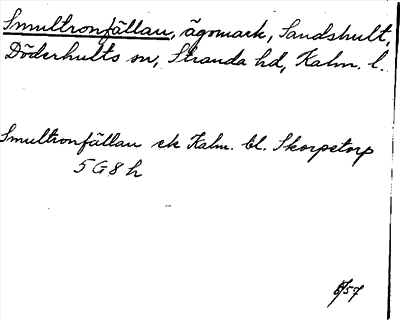 Smultronfällan, ägomark, Sandshult,
Döderhults sn, Stranda hd, Kalm. l.
Smultronfällan ek Kalm. bl. Skorpetorp
5 G 8 h